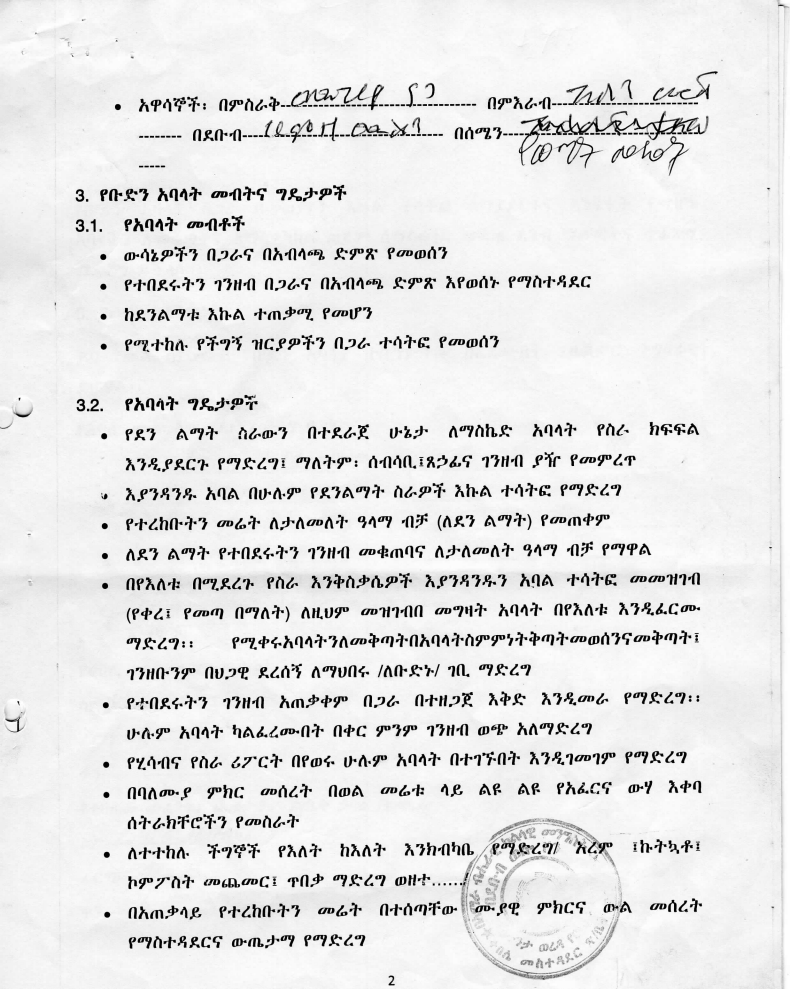 • አዋሳኞች፡ በምስራቅ በምእራብ
በደቡብ በሰሜን
3. የቡድን አባላት መብትና ግዴታዎች
3.1. የአባላት መብቶች
• ውሳኔዎችን በጋራና በአብላጫ ድምጽ የመወሰን
• የተበደሩትን ገንዘብ በጋራና በአብላጫ ድምጽ እየወሰኑ የማስተዳደር
• ከደንልማቱ እኩል ተጠቃሚ የመሆን
• የሚተከሉ የችግኝ ዝርያዎችን በጋራ ተሳትፎ የመወሰን
3.2. የአባላት ግዴታዎች
• የደን ልማት ስራውን በተደራጀ ሁኔታ ለማስኬድ አባላት የስራ ክፍፍል
እንዲያደርጉ የማድረግ፤ ማለትም፡ ሰብሳቢ፤ጸኃፊና ገንዘብ ያዥ የመምረጥ
• እያንዳንዱ አባል በሁሉም የደንልማት ስራዎች እኩል ተሳትፎ የማድረግ
• የተረከቡትን መሬት ለታለመለት ዓላማ ብቻ (ለደን ልማት) የመጠቀም
• ለደን ልማት የተበደሩትን ገንዘብ መቁጠባና ለታለመለት ዓላማ ብቻ የማዋል
• በየእለቱ በሚደረጉ የስራ እንቅስቃሴዎች እያንዳንዱን አባል ተሳትፎ መመዝገብ
(የቀረ፤ የመጣ በማለት) ለዚህም መዝገብበ መግዛት አባላት በየእለቱ እንዲፈርሙ
ማድረግ፡፡ የሚቀሩአባላትንለመቅጣትበአባላትስምምነትቅጣትመወሰንናመቅጣት፤
ገንዘቡንም በህጋዊ ደረሰኝ ለማህበሩ /ለቡድኑ/ ገቢ ማድረግ
• የተበደሩትን ገንዘብ አጠቃቀም በጋራ በተዘጋጀ እቅድ እንዲመራ የማድረግ፡፡
ሁሉም አባላት ካልፈረሙበት በቀር ምንም ገንዘብ ወጭ አለማድረግ
• የሂሳብና የስራ ሪፖርት በየወሩ ሁሉም አባላት በተገኙበት እንዲገመገም የማድረግ
• በባለሙያ ምክር መሰረት በወል መሬቱ ላይ ልዩ ልዩ የአፈርና ውሃ እቀባ
ሰትራክቸሮችን የመስራት
• ለተተከሉ ችግኞች የእለት ከእለት እንክብካቤ የማድረግ/ አረም ፤ኩትኳቶ፤
ኮምፖስት መጨመር፤ ጥበቃ ማድረግ ወዘተ......
• በአጠቃላይ የተረከቡትን መሬት በተሰጣቸው ሙያዊ ምክርና ውል መሰረት
የማስተዳደርና ውጤታማ የማድረግ
2